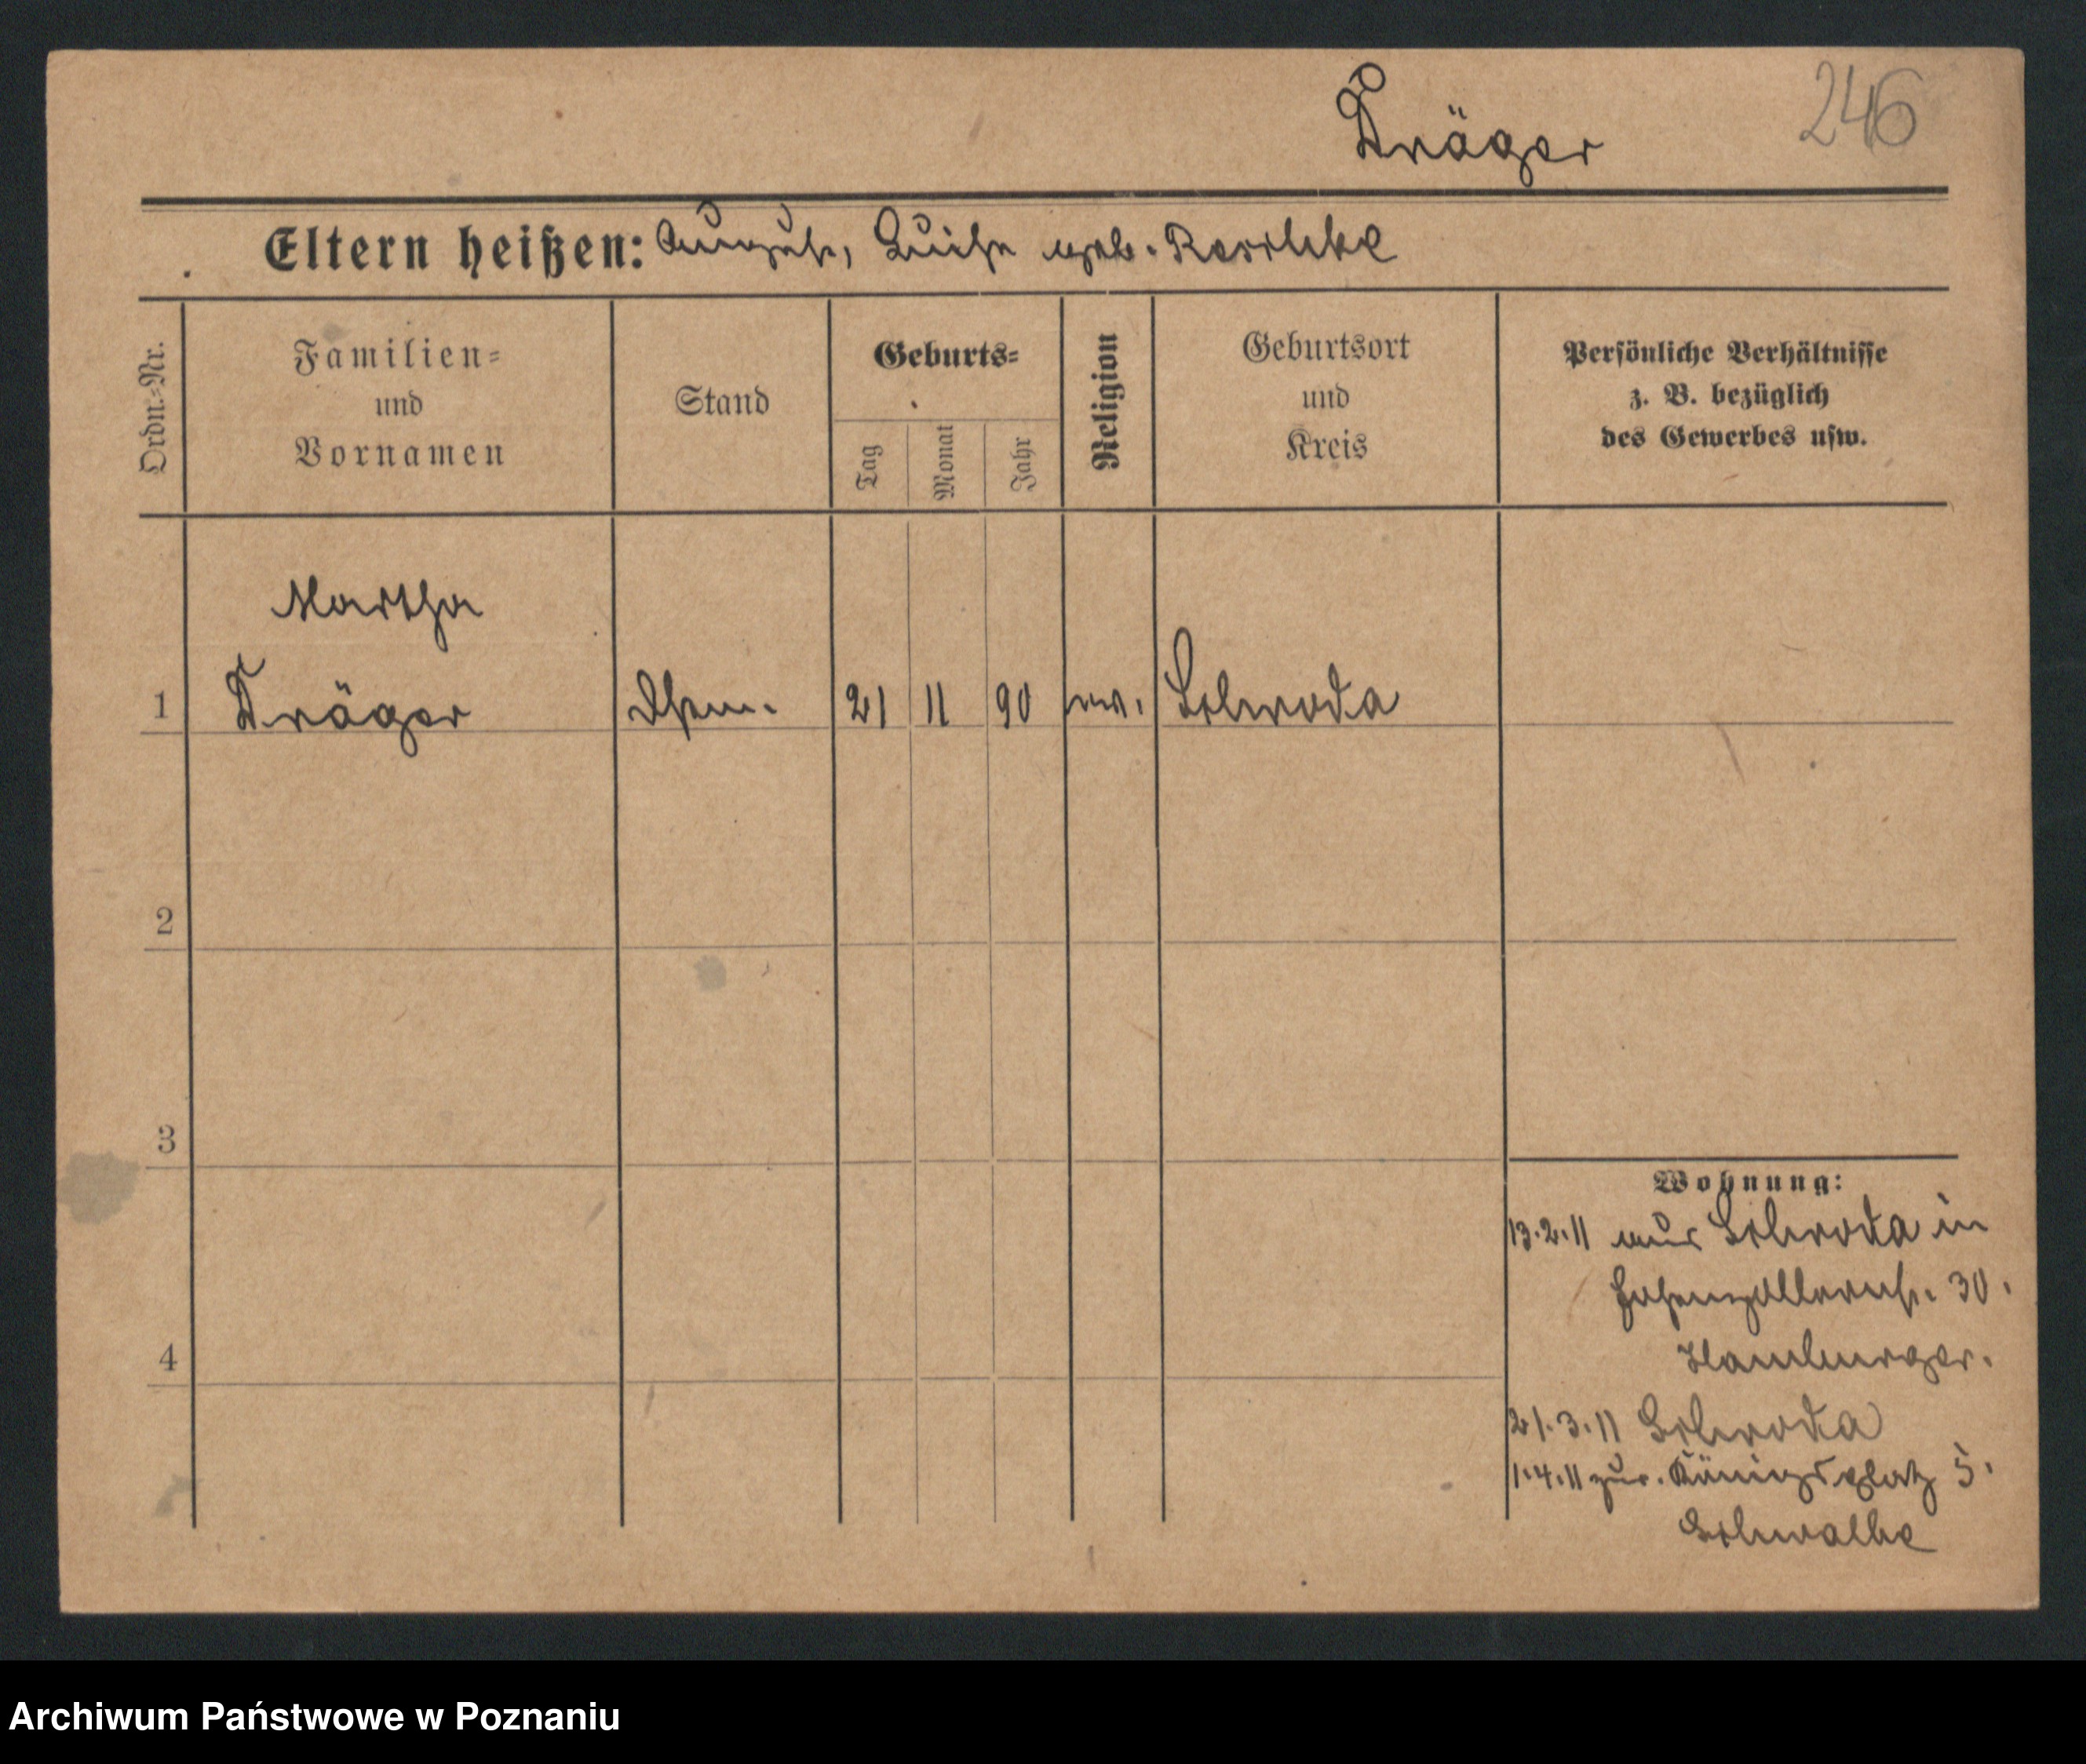 Dräger 246
Eltern heißen: August, Luise geb. Reschke
Ordn.=Nr.
Familien=
und
Vornamen
Stand
Geburts=
Tag
Monat
Jahr
Religion
Geburtsort
und
Kreis
Persönliche Verhältnisse
z. B. bezüglich
des Gewerbes usw.
Martha
1 Dräger 21 11 90 ev. Schroda
2
3
4
Wohnung:
13.2.11 aus Schroda in
Hohenzollernstr. 30.
Hamburger.
21.3.11 Schroda
1.4.11 zur. Königsplatz 5.
Schwalbe
Archiwum Państwowe w Poznaniu